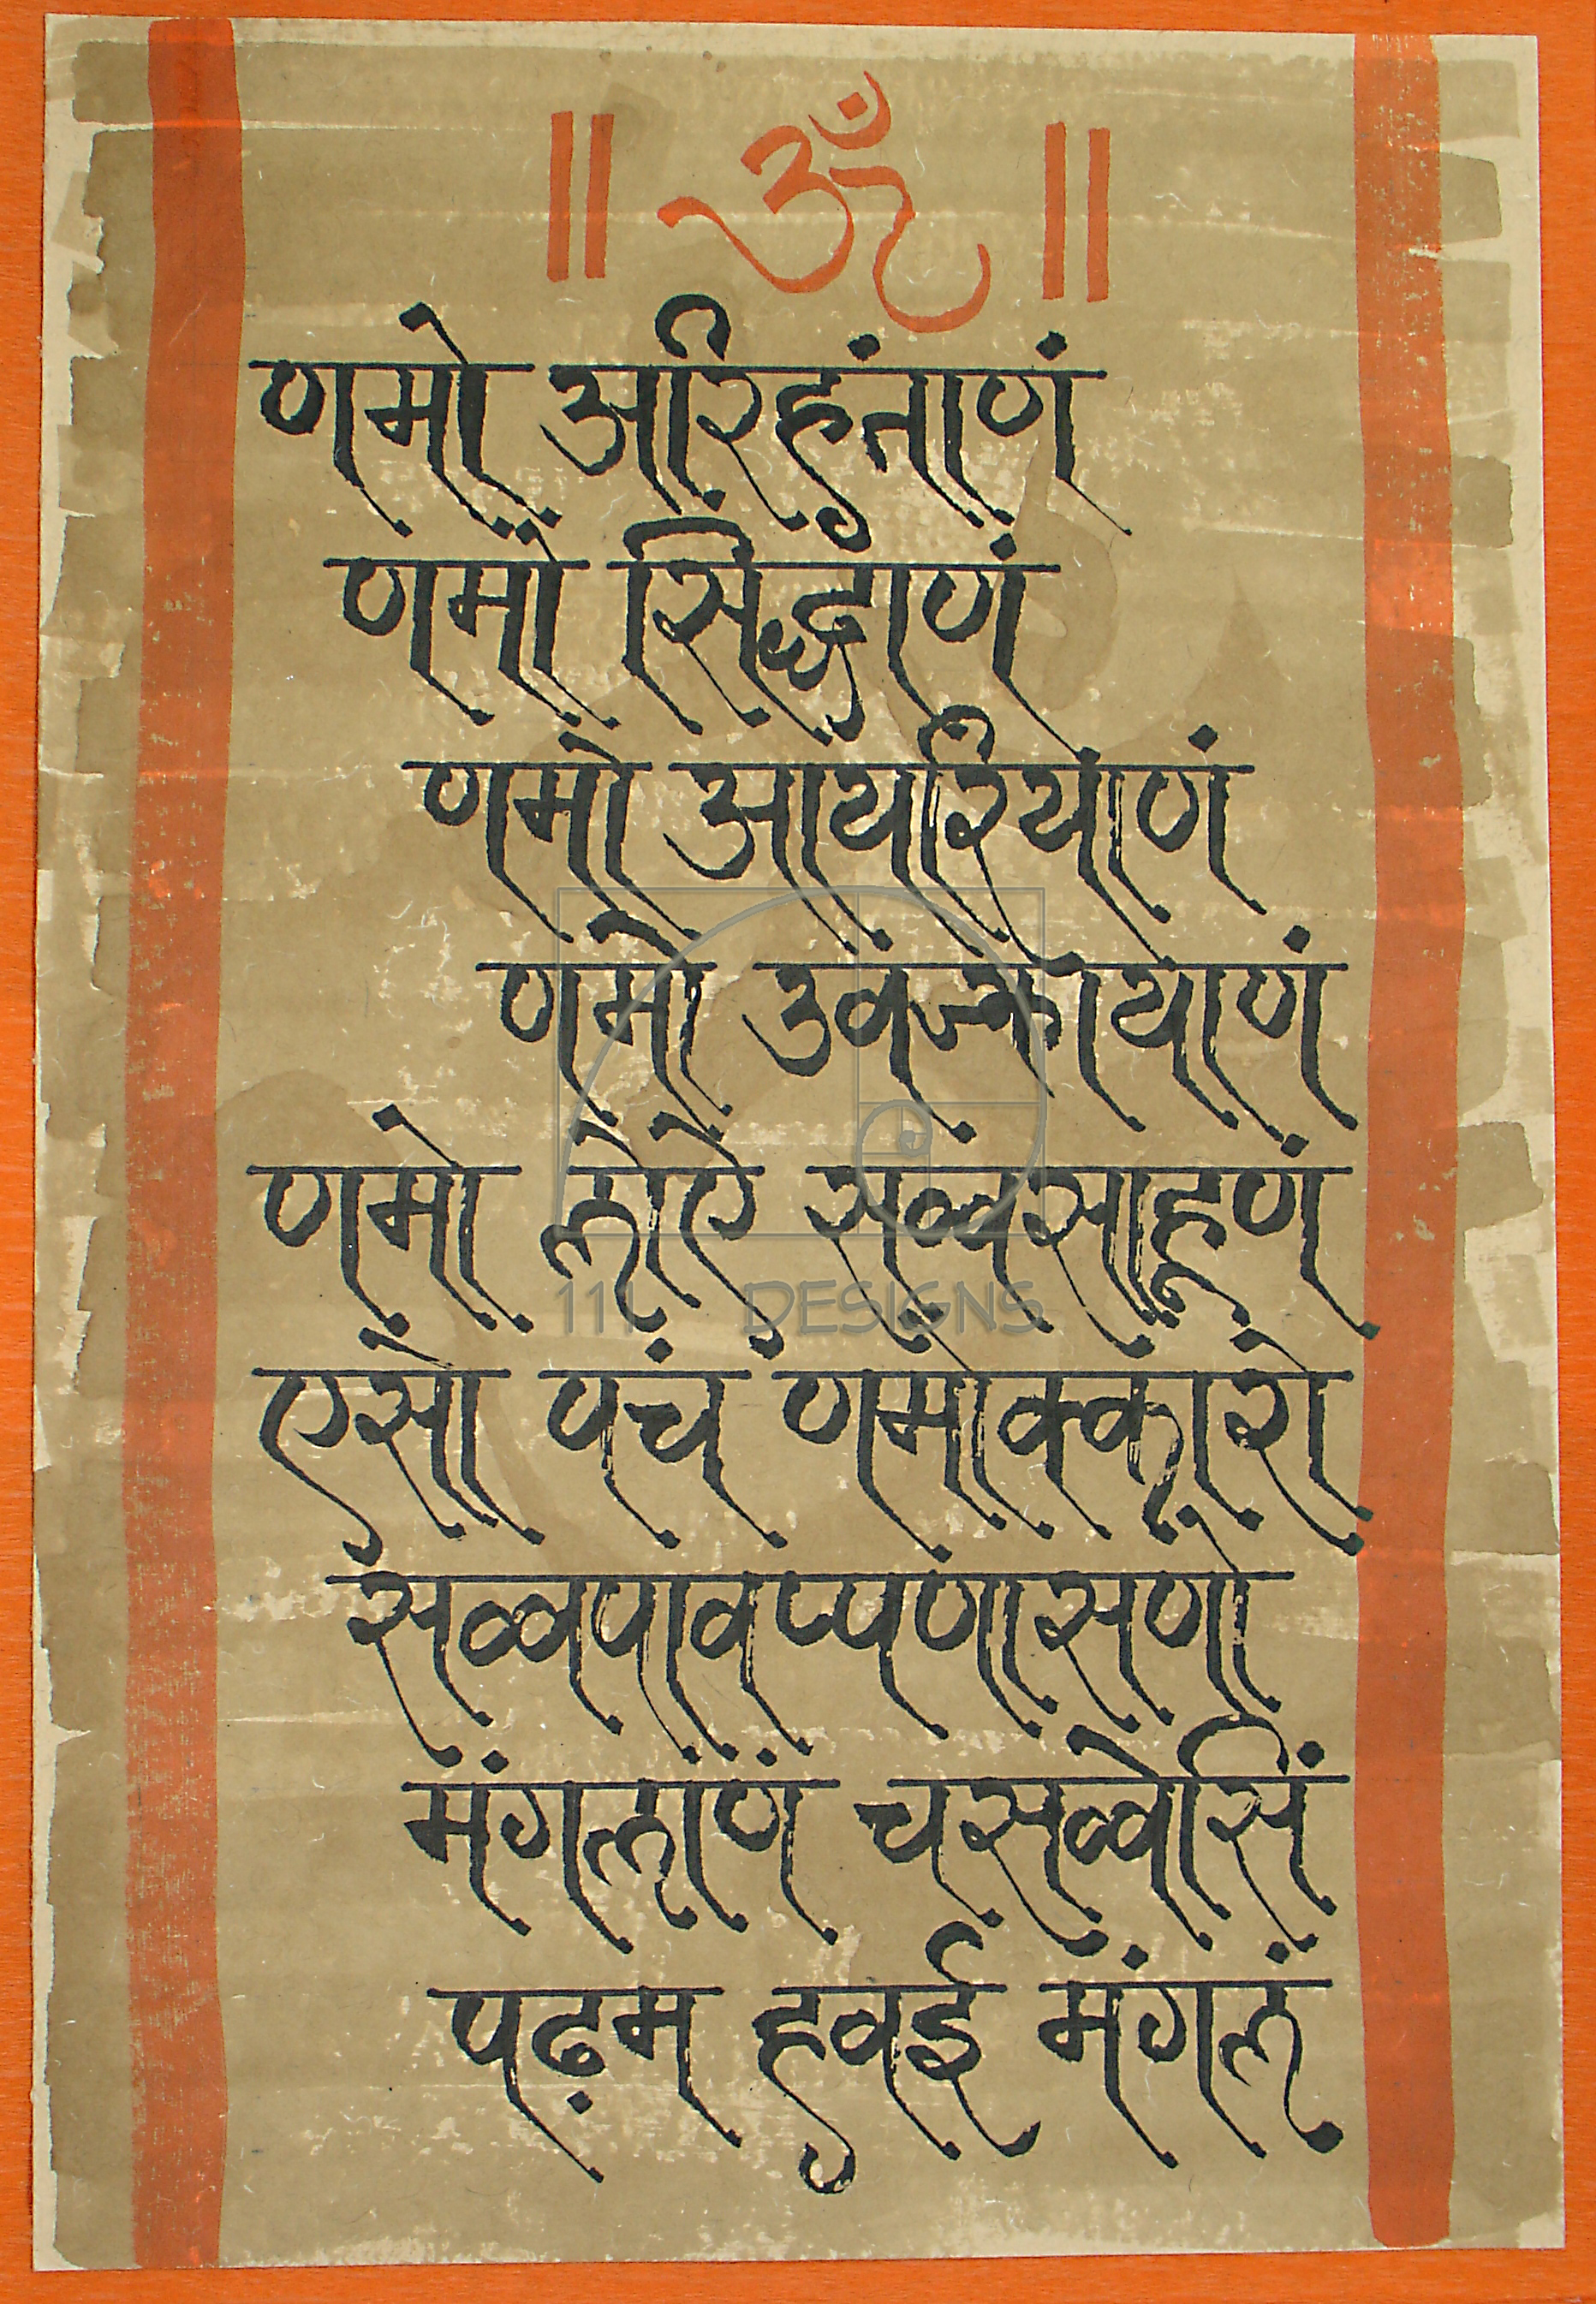 ॥ ॐ ॥
णमो अरिहंताणं
णमो सिद्धाणं
णमो आयरियाणं
णमो उवज्झायाणं
णमो लोऐ सव्वसाहूणं
एसो पंच णमोक्कारो
सव्वपावप्पणासणो
मंगलाणं चसव्वेसिं
पढ़म हवई मंगलं
111 DESIGNS